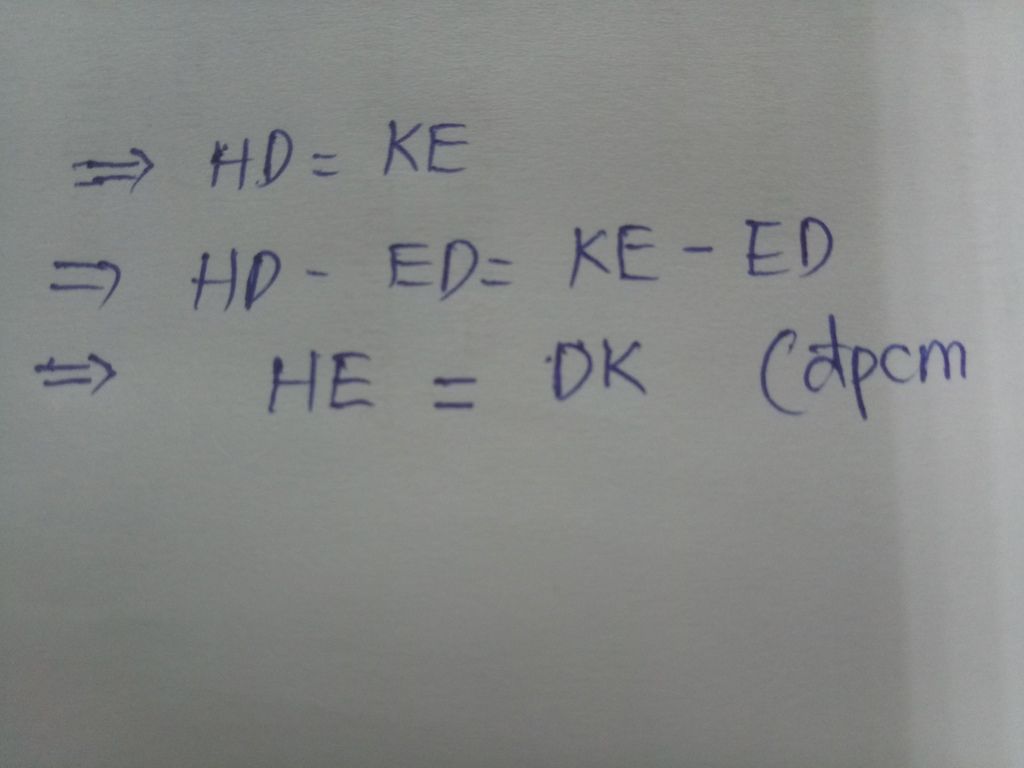 ⇒ HD = KE
⇒ HD - ED = KE - ED
⇒ HE = DK (đpcm